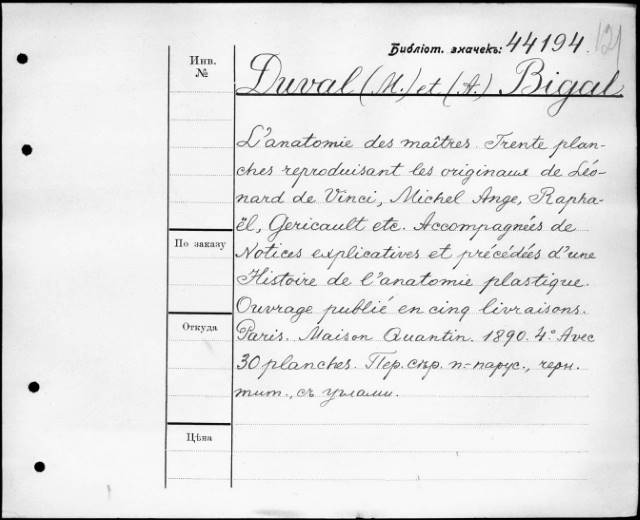 Библіот. значекъ: 44194. 121
Инв.
№
Duval (M.) et (A.) Bigal
L'anatomie des maîtres. Trente plan-
ches reproduisant les originaux de Léo-
nard de Vinci, Michel Ange, Rapha-
ël, Gericault etc. Accompagnées de
По заказу
Notices explicatives et précédées d'une
Histoire de l'anatomie plastique.
Ouvrage publié en cinq livraisons.
Откуда
Paris. Maison Quantin. 1890. 4° Avec
30 planches. Пер. спр. п.-парус., черн.
тит., съ углами.
Цѣна